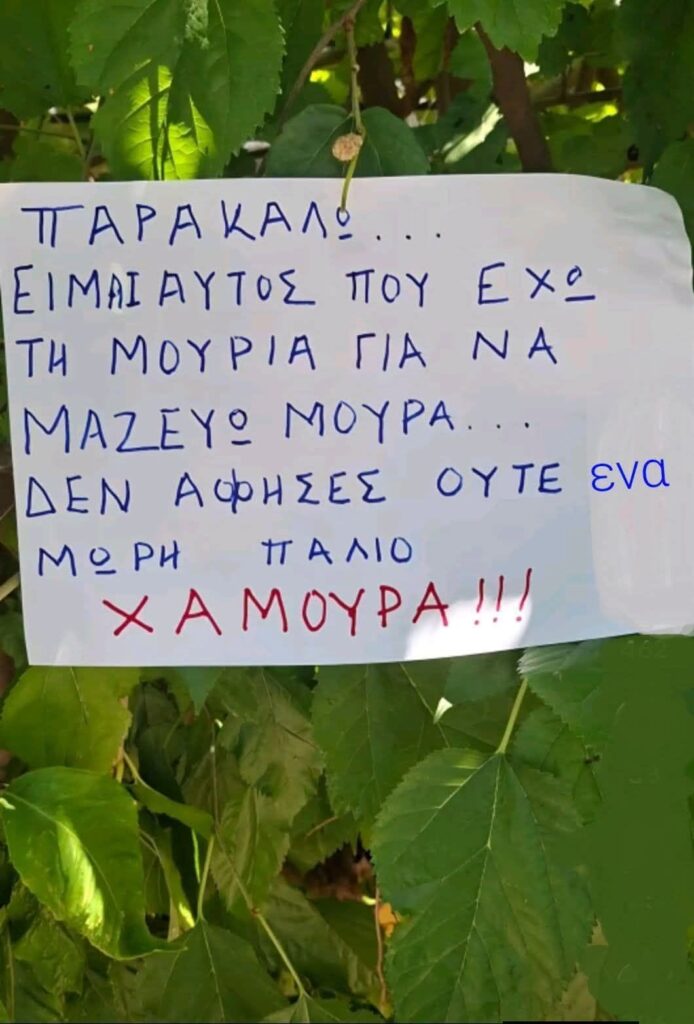 ΠΑΡΑΚΑΛΩ...
ΕΙΜΑΙ ΑΥΤΟΣ ΠΟΥ ΕΧΩ
ΤΗ ΜΟΥΡΙΑ ΓΙΑ ΝΑ
ΜΑΖΕΥΩ ΜΟΥΡΑ...
ΔΕΝ ΑΦΗΣΕΣ ΟΥΤΕ ενα
ΜΩΡΗ ΠΑΛΙΟ
ΧΑΜΟΥΡΑ!!!